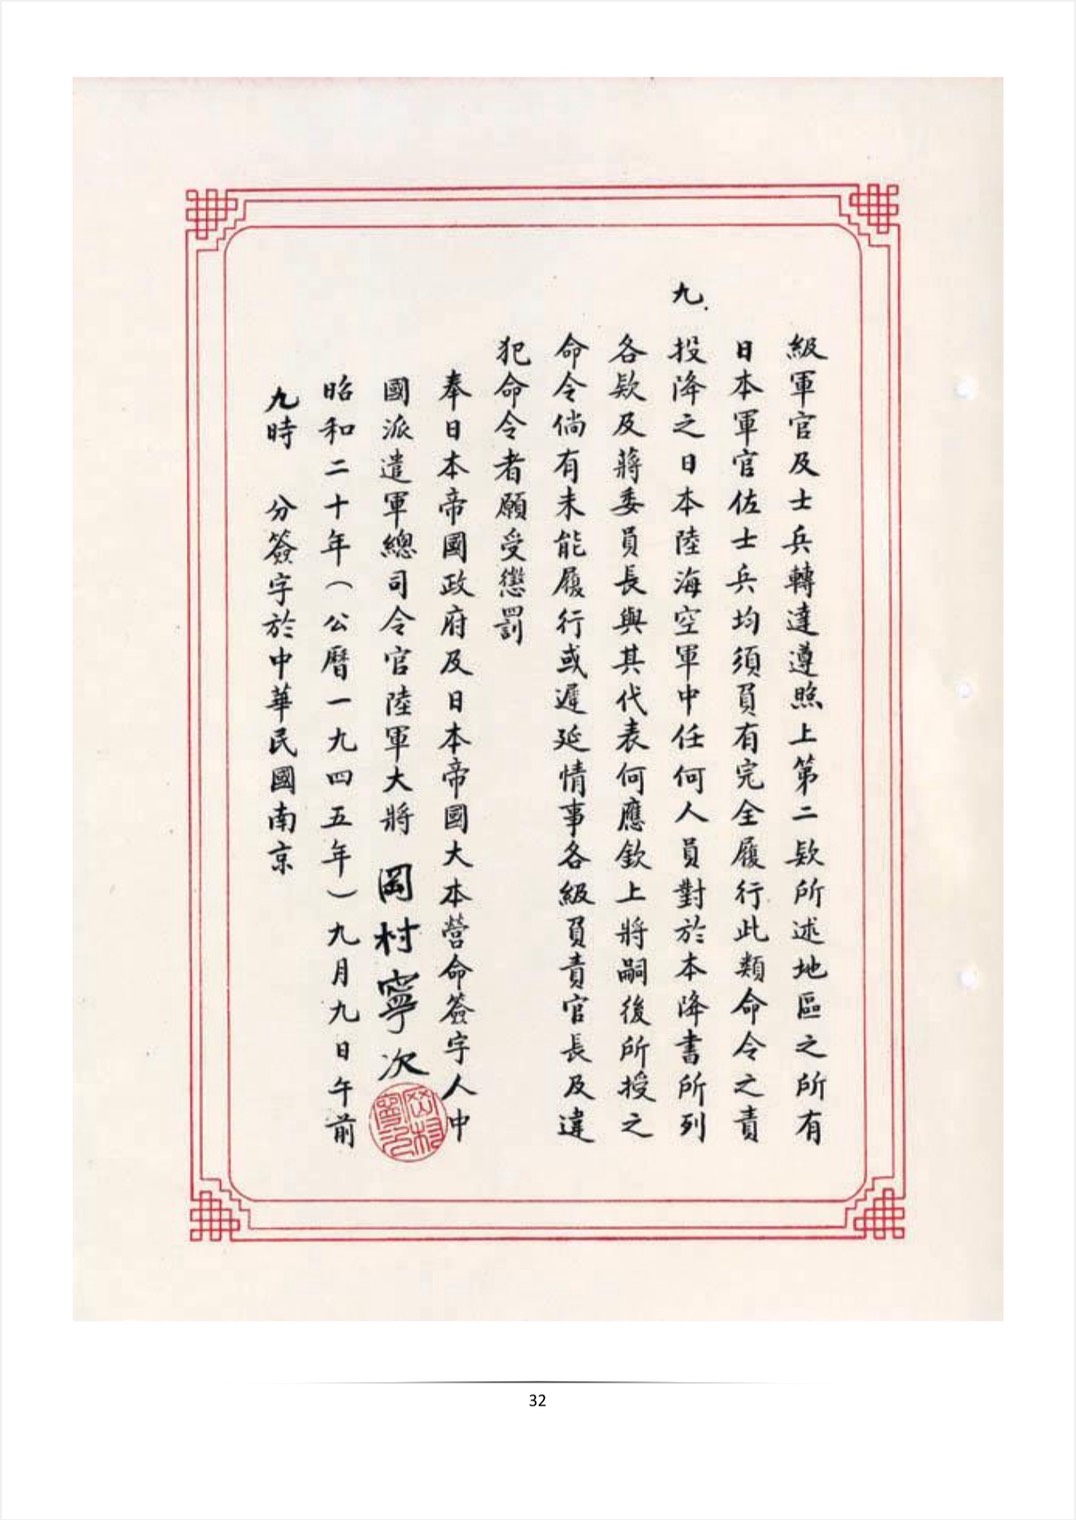 級軍官及士兵轉達遵照上第二欵所述地區之所有
日本軍官佐士兵均須負有完全履行此類命令之責
九.投降之日本陸海空軍中任何人員對於本降書所列
各欵及蔣委員長與其代表何應欽上將嗣後所授之
命令倘有未能履行或遲延情事各級負責官長及違
犯命令者願受懲罰
奉日本帝國政府及日本帝國大本營命簽字人中
國派遣軍總司令官陸軍大將 岡村寧次
岡村寧次
昭和二十年(公曆一九四五年)九月九日午前
九時 分簽字於中華民國南京
32